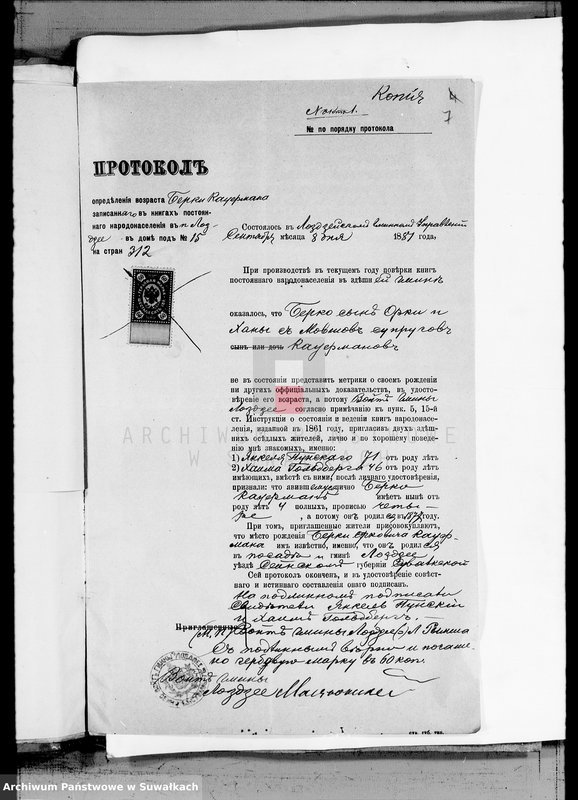 Копія
7
№ по порядку протокола
ПРОТОКОЛЪ
опредѣленія возраста Берки Кауермана
записаннаго въ книгахъ постоян-
наго народонаселенія въ п. Лоз-
дзее въ домѣ подъ № 15
на стран 312
Состоялось въ Лоздзейскомъ гминномъ Управленіи
Сентября мѣсяца 8 дня 1881 года,
При производствѣ въ текущемъ году повѣрки книгъ
постояннаго народонаселенія въ здѣшней гминѣ
оказалось, что Берко сынъ Орки и
Ханы съ Мовшов супруговъ
сынъ или дочь Кауермановъ
не въ состояніи представить метрики о своемъ рожденіи
ни другихъ оффиціальныхъ доказательствъ, въ удосто-
вѣреніе его возраста, а потому Войтъ гмины
Лоздзее согласно примѣчанію къ пунк. 5, 15-й
ст. Инструкціи о состояніи и веденіи книгъ народонасе-
ленія, изданной въ 1861 году, пригласивъ двухъ здѣш-
нихъ осѣдлыхъ жителей, лично и по хорошему поведе-
нію мнѣ знакомыхъ, именно:
1) Янкеля Пунскаго 71 отъ роду лѣтъ
2) Хаима Гольдберга 46 отъ роду лѣтъ
имѣющихъ, вмѣстѣ съ ними, послѣ личнаго удостовѣренія,
признали: что явившійся лично Берко
Кауерманъ имѣетъ нынѣ отъ
роду лѣтъ 4 полныхъ, прописью четы-
ре, а потому онъ родился въ 1877 году.
При томъ, приглашенные жители присовокупляютъ,
что мѣсто рожденія Берки Орковича Кауер-
мана имъ извѣстно, именно, что онъ родился
въ посадѣ и гминѣ Лоздзее
уѣздѣ Сейнскомъ губерніи Сувалкской
Сей протоколъ оконченъ, и въ удостовѣреніе совѣст-
наго и истиннаго составленія онаго подписанъ.
На подлинномъ подписали
Свидѣтели Янкель Пунскій
и Хаимъ Гольдбергъ.
Приглашенные
(М. П.) Войтъ гмины Лоздзее (-) Л.
Съ подлиннымъ вѣрно и погаше-
но гербовую марку въ 60 коп.
Войтъ гмины
Лоздзее
ARCHIWUM PAŃSTWOWE
W SUWAŁKACH
Archiwum Państwowe w Suwałkach